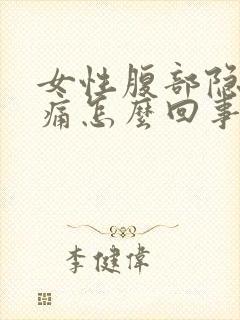 女性腹部隐
痛怎麽回事
李健偉